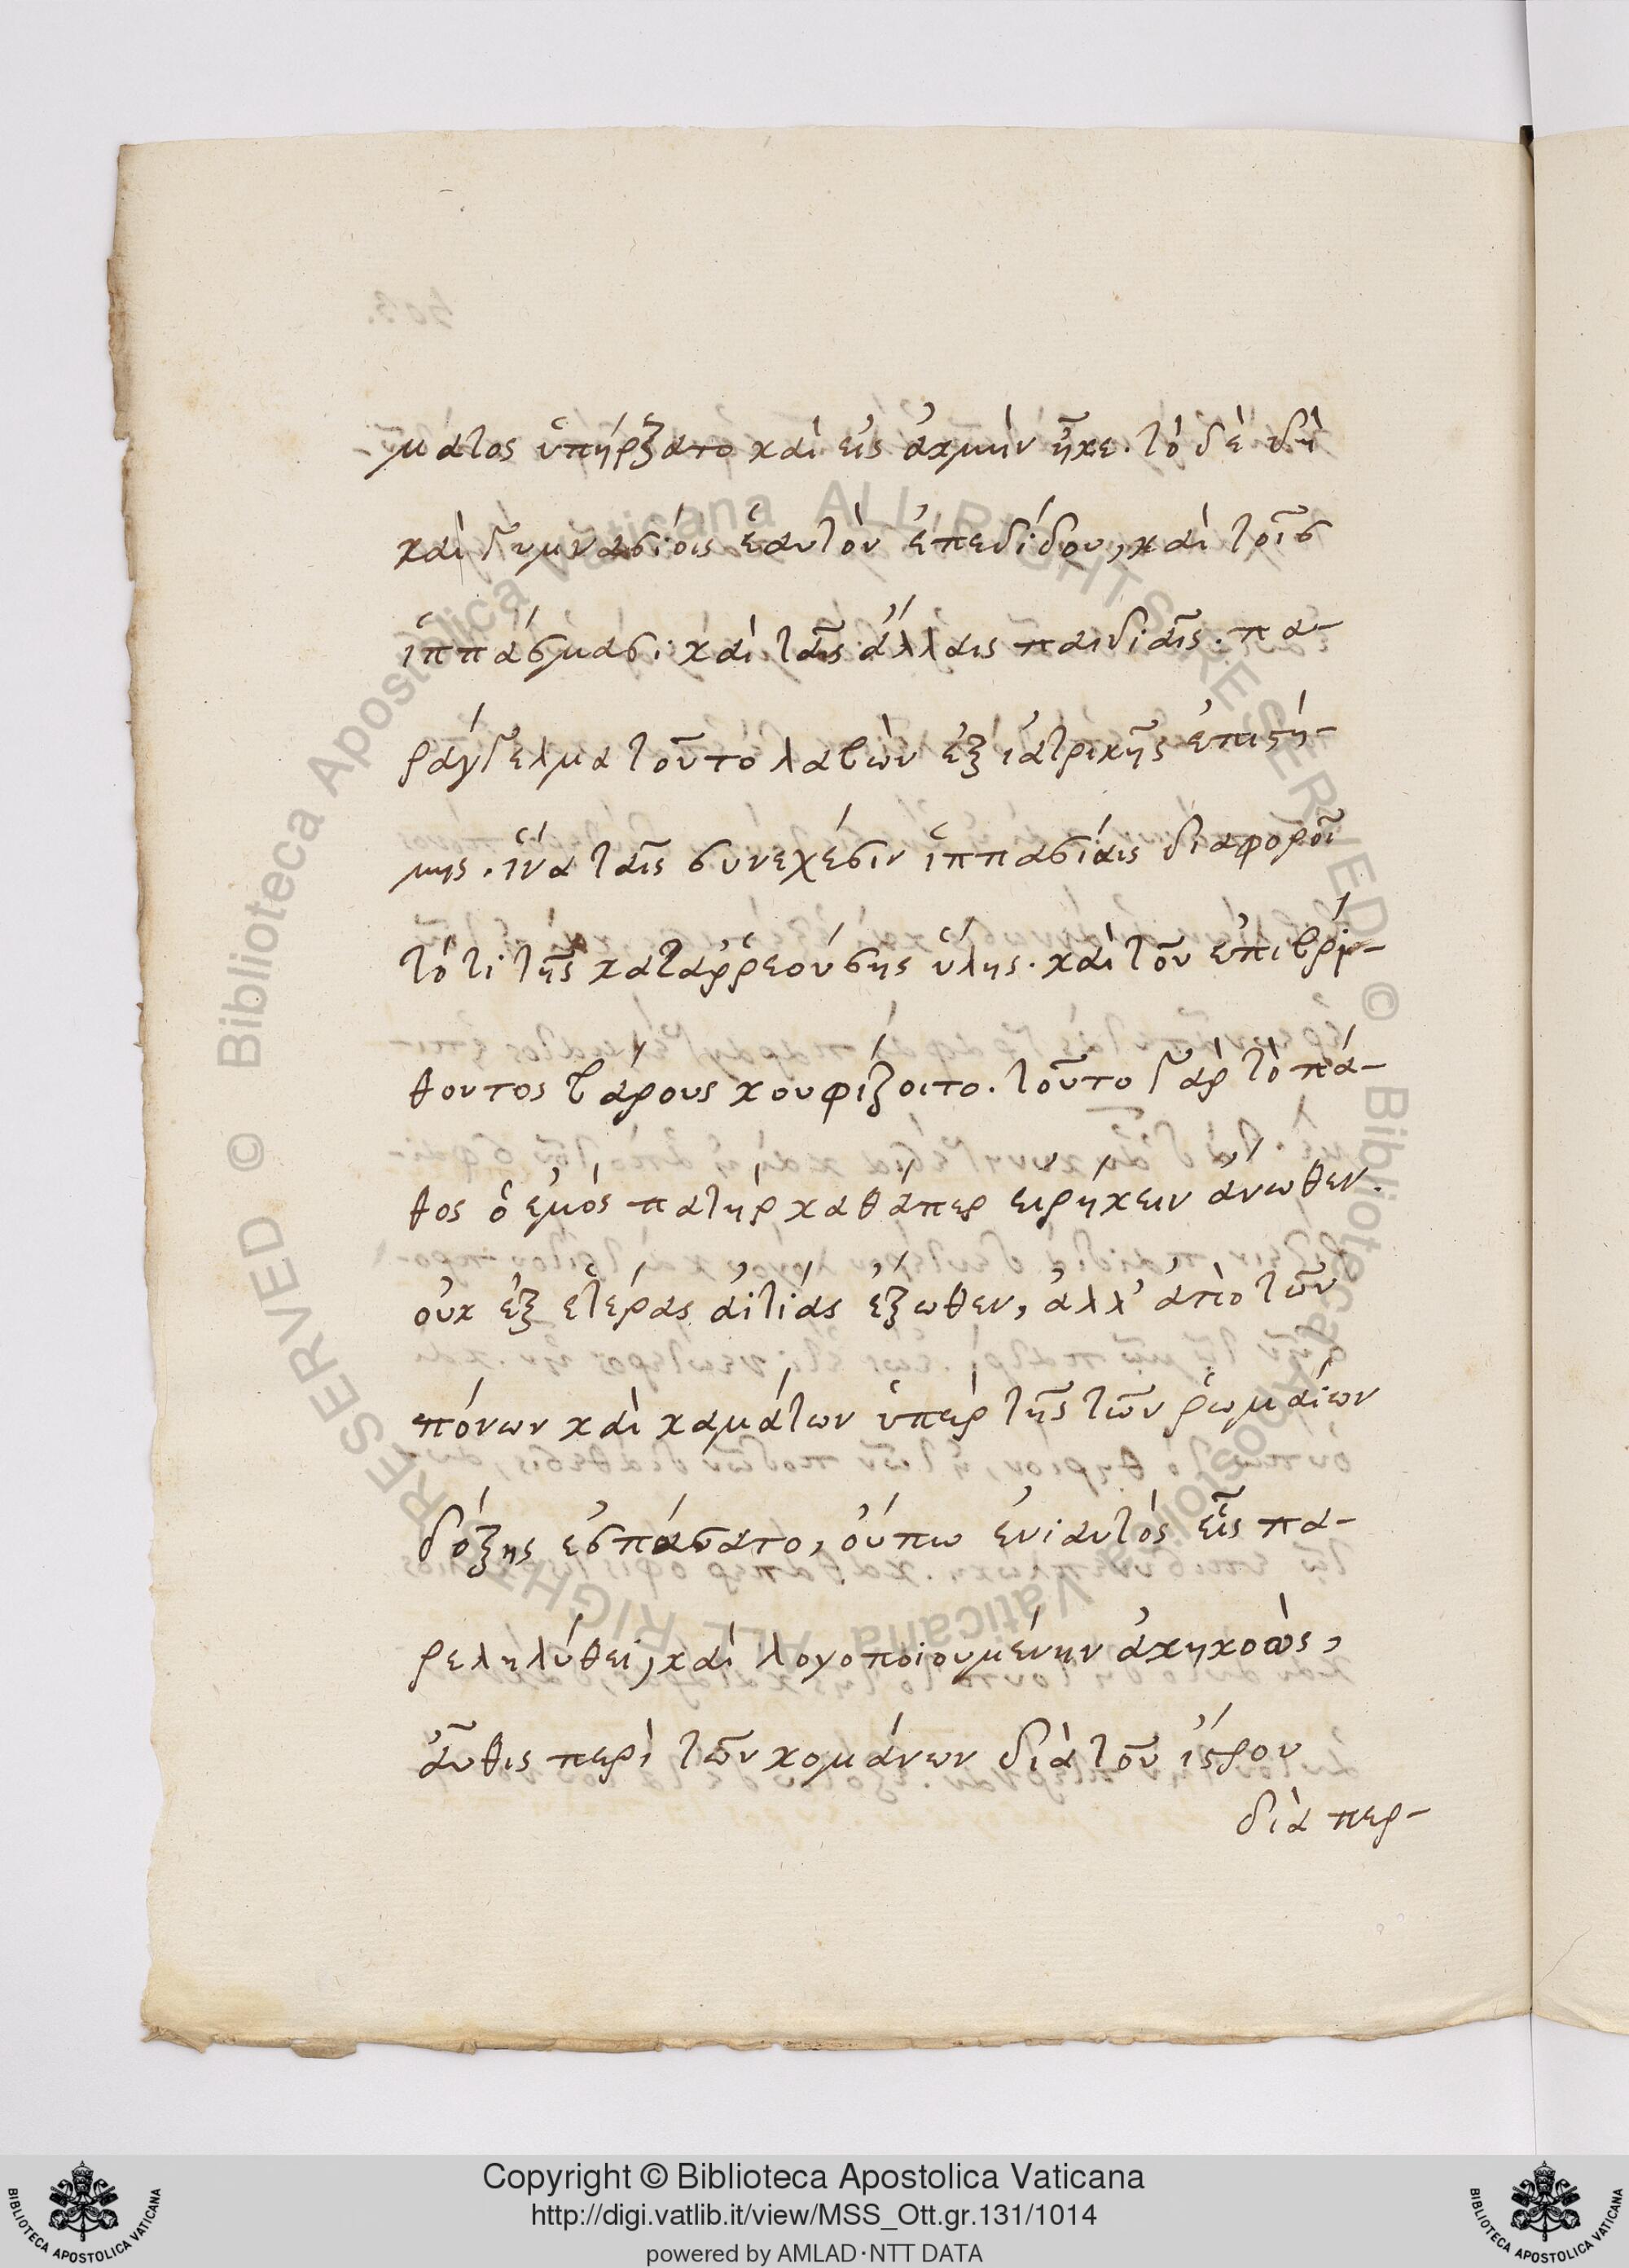 ματος ὑπήρξατο καὶ εἰς ἀκμὴν ἧκε. τὸ δὲ δὴ
καὶ γυμνασίοις ἑαυτὸν ἐπεδίδου, καὶ τοῖς
ἱππάσμασι καὶ ταῖς ἄλλαις παιδιαῖς. πα-
ράγγελμα τοῦτο λαβὼν ἐξ ἰατρικῆς ἐπιστή-
μης. ἵνα ταῖς συνεχέσιν ἱππασίαις διαφοροῖ
τό τι τῆς καταῤῥεούσης ὕλης. καὶ τοῦ ἐπιβρί-
θοντος βάρους κουφίζοιτο. τοῦτο γὰρ τὸ πά-
θος ὁ ἐμὸς πατὴρ καθάπερ εἰρήκειν ἄνωθεν.
οὐκ ἐξ ἑτέρας αἰτίας ἔξωθεν, ἀλλ' ἀπὸ τῶν
πόνων καὶ καμάτων ὑπὲρ τῆς τῶν ῥωμαίων
δόξης ἐσπάσατο, οὔπω ἐνιαυτὸς εἷς πα-
ρεληλύθει, καὶ λογοποιουμένην ἀκηκοὼς,
αὖθις περὶ τῶν κομάνων διὰ τοῦ ἴστρου
διὰ περ-
© Biblioteca Apostolica Vaticana ALL RIGHTS RESERVED © Biblioteca Apostolica Vaticana ALL RIGHTS RESERVED
Copyright © Biblioteca Apostolica Vaticana
http://digi.vatlib.it/view/MSS_Ott.gr.131/1014
powered by AMLAD·NTT DATA
BIBLIOTECA APOSTOLICA VATICANA
BIBLIOTECA APOSTOLICA VATICANA